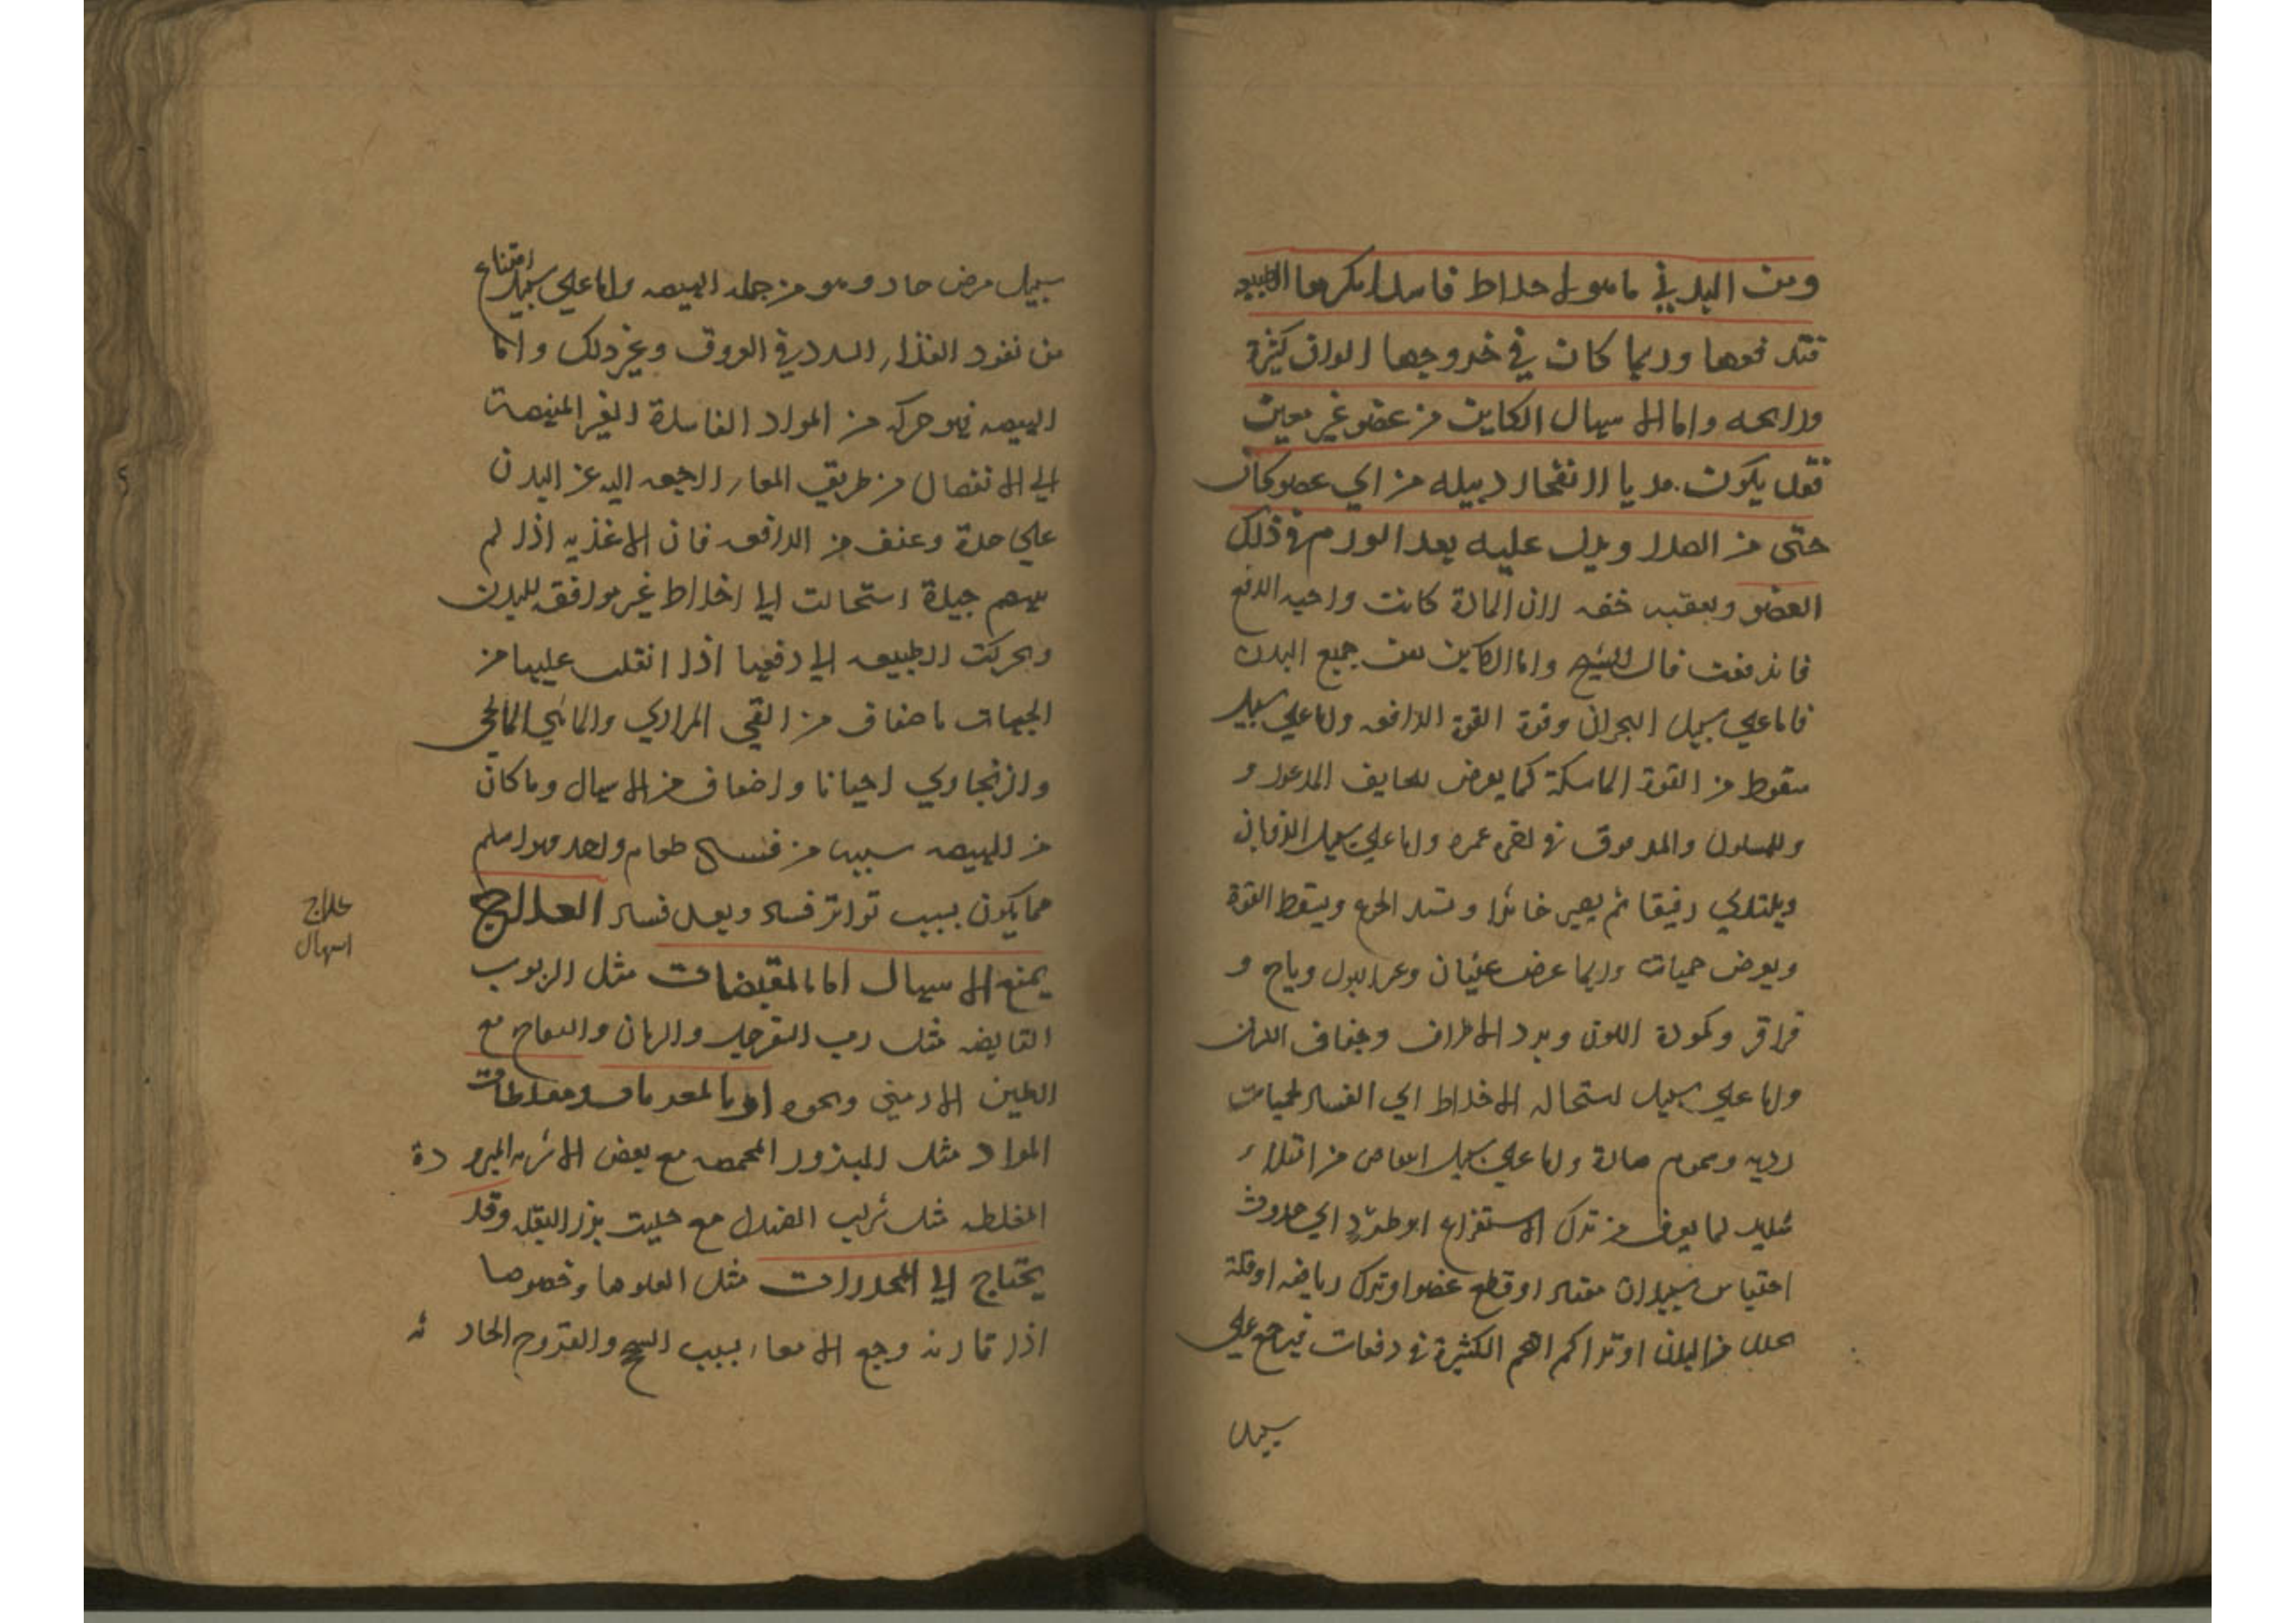 ومن البدني ما هو لاخلاط فاسدة تكرهها الطبيعة
فتدفعها وربما كان في خروجها الوان كثيرة
ورايحه واما الاسهال الكاين من عضو غير معين
فقد يكون مديا لانفجار دبيله من اي عضو كان
حتى من الصدر ويدل عليه بعد الورم في ذلك
العضو ويعقبه خفه لان المادة كانت واجبه الدفع
فاندفعت قال الشيخ واما الكاين من جميع البدن
فاما علي سبيل البحران وقوة القوة الدافعه واما علي سبيل
سقوط من القوة الماسكة كما يعرض للخايف المذعور و
وللمسلول والمدقوق في اخر عمره واما علي سبيل الذوبان
ويبتدي رقيقا ثم يصير خاثرا ويسقط القوة
ويعرض حميات وربما عرض غثيان وعسر البول ورياح و
قراقر وكمودة اللون وبرد الاطراف وجفاف اللسان
واما علي سبيل استحاله الاخلاط الي الفساد لحميات
رديه وسموم حارة واما علي سبيل انتفاض من امتلاء
شديد لما يعرف من ترك الاستفراغ او طرد الي حدوث
احتباس سيلان معتاد او قطع عضو او ترك رياضه او قلة
تحلل من البدن او تراكم التخم الكثيرة في دفعات فيرجع علي
سبيل
سبيل مرض حاد وهو من جمله الهيضه واما علي سبيل امتناع
من نفوذ الغذاء لسدد في العروق وغير ذلك واما
الهيضه فهو حركه من المواد الفاسدة الغير المنهضمة
الي الانفصال من طريق المعاء راجعه اليه عن البدن
علي حدة وعنف من الدافعه فان الاغذيه اذا لم
تنهضم جيدة استحالت الي اخلاط غير موافقه للبدن
وتحركت الطبيعه الي دفعها اذا انقلت عليها من
الجهات باصناف من القي المراري والمائي المالحي
والزنجاري احيانا واصناف من الاسهال وما كان
من الهيضه سببه من فساد طعام واحد فهو اسلم
مما يكون بسبب تواتر فساد وبعد فساد العلاج
يمنع الاسهال اما بالمقبضات مثل الربوب
القابضه مثل رب السفرجل والرمان والتفاح مع
الطين الارمني ونحوه او بالمغريات ومغلظات
المواد مثل البزور المحمصه مع بعض الاشربه المبرودة
المغلظه مثل شراب الصندل مع حليب بزر البقله وقد
يحتاج الي المخدرات مثل الفلونيا وخصوصا
اذا قارنه وجع الامعاء بسبب السحج والقروح الحادثه
علاج
اسهال